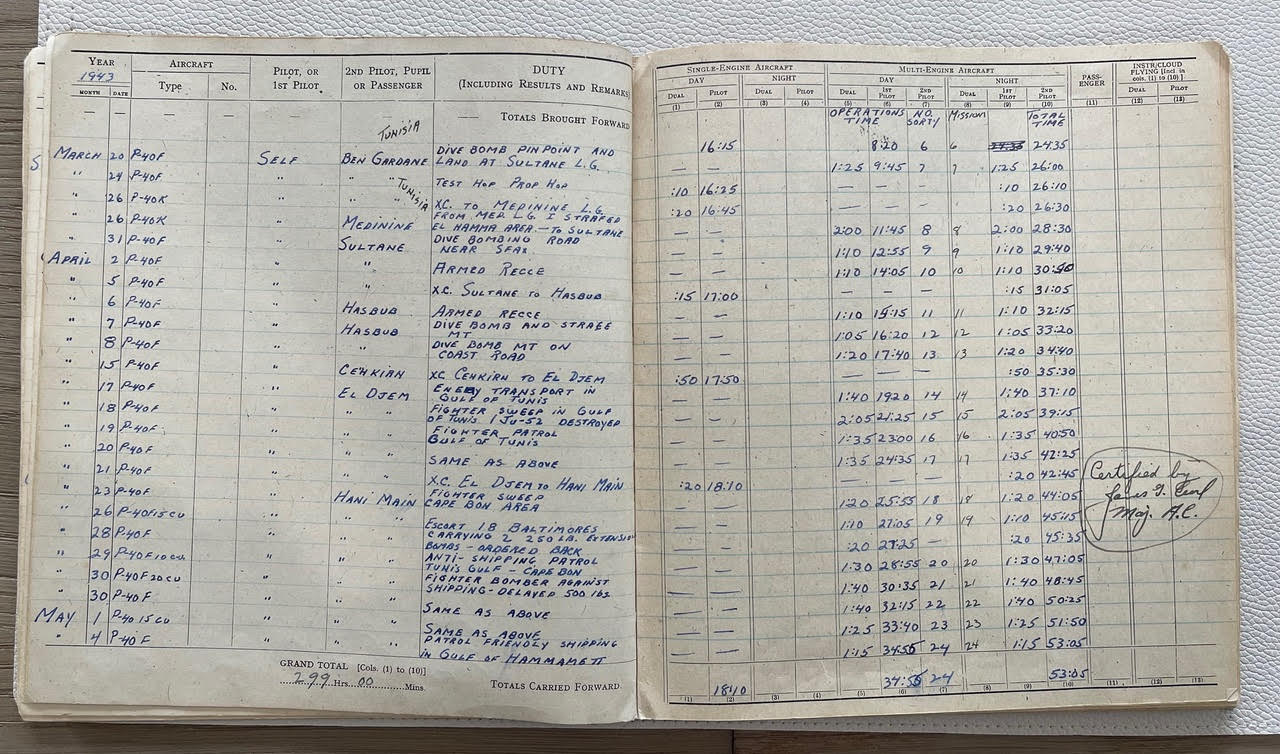 YEAR AIRCRAFT PILOT, OR 2ND PILOT, PUPIL DUTY
1943 Type No. 1ST PILOT OR PASSENGER (INCLUDING RESULTS AND REMARKS)
MONTH DATE
— — — — — — — TOTALS BROUGHT FORWARD
TUNISIA
MARCH 20 P-40F SELF BEN GARDANE DIVE BOMB PINPOINT AND
LAND AT SULTANE L.G.
" 24 P-40F " " " TEST HOP PROP HOP
TUNISIA
" 26 P-40K " " " XC. TO MEDININE L.G.
" 26 P-40K " MEDININE FROM MED. L.G. I STRAFED
EL HAMMA AREA - TO SULTANE
" 31 P-40F " SULTANE DIVE BOMBING ROAD
NEAR SFAX
APRIL 2 P-40F " " ARMED RECCE
" 5 P-40F " " X.C. SULTANE TO HASBUB
" 6 P-40F " HASBUB ARMED RECCE
" 7 P-40F " HASBUB DIVE BOMB AND STRAFE
MT
" 8 P-40F " " DIVE BOMB MT ON
COAST ROAD
" 15 P-40F " XC CEHKIRN TO EL DJEM
" 17 P-40F " EL DJEM ENEMY TRANSPORT IN
GULF OF TUNIS
" 18 P-40F " " " FIGHTER SWEEP IN GULF
OF TUNIS 1 JU-52 DESTROYED
" 19 P-40F " " " FIGHTER PATROL
GULF OF TUNIS
" 20 P-40F " " " SAME AS ABOVE
" 21 P-40F " " " X.C. EL DJEM TO HANI MAIN
" 23 P-40F " HANI MAIN FIGHTER SWEEP
CAPE BON AREA
" 26 P-40F15CU " " "
" 28 P-40F " " " ESCORT 18 BALTIMORES
CARRYING 2 250 LB. EXTENSION
BOMBS - ORDERED BACK
" 29 P-40F10CU " " " ANTI-SHIPPING PATROL
TUNIS GULF - CAPE BON
" 30 P-40F20CU " " " FIGHTER BOMBER AGAINST
SHIPPING - DELAYED 500 lbs.
" 30 P-40F " " " SAME AS ABOVE
MAY 1 P-40 15CU " " " SAME AS ABOVE
" 4 P-40F " " " PATROL FRIENDLY SHIPPING
IN GULF OF HAMMAMETT
GRAND TOTAL [Cols. (1) to (10)]
299 Hrs. 00 Mins.
TOTALS CARRIED FORWARD
SINGLE-ENGINE AIRCRAFT MULTI-ENGINE AIRCRAFT PASS-ENGER INSTR/CLOUD FLYING [Incl. in cols. (1) to (10)]
DAY NIGHT DAY NIGHT
DUAL PILOT DUAL PILOT DUAL 1ST PILOT 2ND PILOT DUAL 1ST PILOT 2ND PILOT DUAL PILOT
(1) (2) (3) (4) (5) (6) (7) (8) (9) (10) (11) (12) (13)
OPERATIONS TIME NO. SORTY Mission TOTAL TIME
16:15 8:20 6 6 24:35
— — 1:25 9:45 7 7 1:25 26:00
:10 16:25 — — — :10 26:10
:20 16:45 — — — :20 26:30
— — 2:00 11:45 8 8 2:00 28:30
— — 1:10 12:55 9 9 1:10 29:40
— — 1:10 14:05 10 10 1:10
:15 17:00 — — — :15 31:05
— — 1:10 15:15 11 11 1:10 32:15
— — 1:05 16:20 12 12 1:05 33:20
— — 1:20 17:40 13 13 1:20 34:40
:50 17:50 — — — :50 35:30
— — 1:40 1920 14 14 1:40 37:10
— — 2:05 21:25 15 15 2:05 39:15
— — 1:35 23:00 16 16 1:35 40:50
— — 1:35 24:35 17 17 1:35 42:25
:20 18:10 — — — :20 42:45
— — 1:20 25:55 18 18 1:20 44:05
— — 1:10 27:05 19 19 1:10 45:15
— — :20 27:25 — :20 45:35
— — 1:30 28:55 20 20 1:30 47:05
— — 1:40 30:35 21 21 1:40 48:45
— — 1:40 32:15 22 22 1:40 50:25
— — 1:25 33:40 23 23 1:25 51:50
— — 1:15 34:55 24 24 1:15 53:05
18:10 34:55 24 53:05
(1) (2) (3) (4) (5) (6) (7) (8) (9) (10) (11) (12) (13)
Certified by
Maj. A.C.